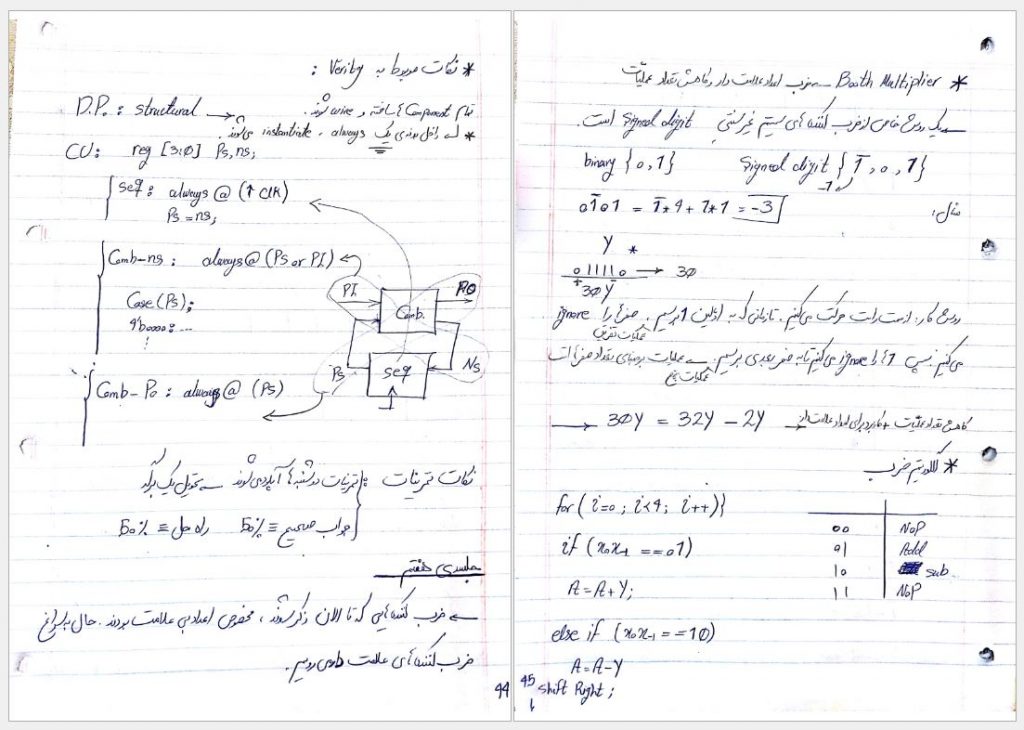 * نکات مربوط به Verilog :
D.P. : structural → تمام Component ها ساخته و wire شوند.
* داخل بدنه ی یک always ، instantiate نمی شوند.
CU: reg [3:0] Ps,ns;
seq : always @ (↑ clk)
Ps = ns;
Comb-ns : always@ (Ps or PI)
Case (Ps);
4'b0000: ...
⋮
PI
PO
Comb.
Ps
seq
Ns
Comb-Po : always@ (Ps)
نکات تمرینات : تمرینات دوشنبه ها آپلود می شوند → تحویل یک
جواب صحیح ≡ 50% راه حل ≡ 50%
جلسه ی هفتم
← ضرب کننده هایی که تا الان ذکر شدند ، مخصوص اعداد بی علامت بودند . حال به سراغ
ضرب کننده های علامت دار می رویم.
44
* Booth Multiplier → ضرب اعداد علامت دار و کاهش تعداد عملیات
یک روش خاص از ضرب کننده های سیستم غیر سنتی Signed digit است.
binary {0,1} Signed digit {1̄,0,1}
-1
مثال: 01̄01 = 1̄*4 + 1*1 = -3
Y *
011110 → 30
+ -
30Y
روش کار: از سمت راست حرکت می کنیم . تا زمانی که به اولین 1 برسیم . صفرها را ignore
عملیات تفریق
می کنیم. سپس 1 ها را ignore می کنیم تا به صفر بعدی برسیم. ← عملیات بر مبنای تعداد صفر است
عملیات جمع
→ 30Y = 32Y - 2Y → کاهش تعداد عملیات + کاربرد برای اعداد علامت دار
* الگوریتم ضرب
for ( i=0 ; i<4 ; i++){
if (x0x-1 == 01)
A = A+Y;
else if (x0x-1 == 10)
A = A-Y
Shift Right ;
00 NoP
01 Add
10 sub.
11 NoP
45